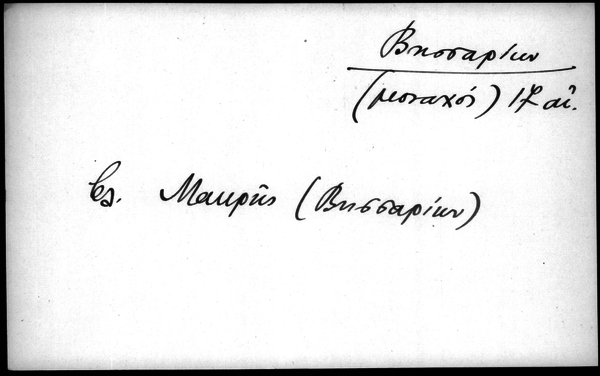 Βησσαρίων
(μοναχός) 17 αἰ.
βλ. Μακρῆς (Βησσαρίων)